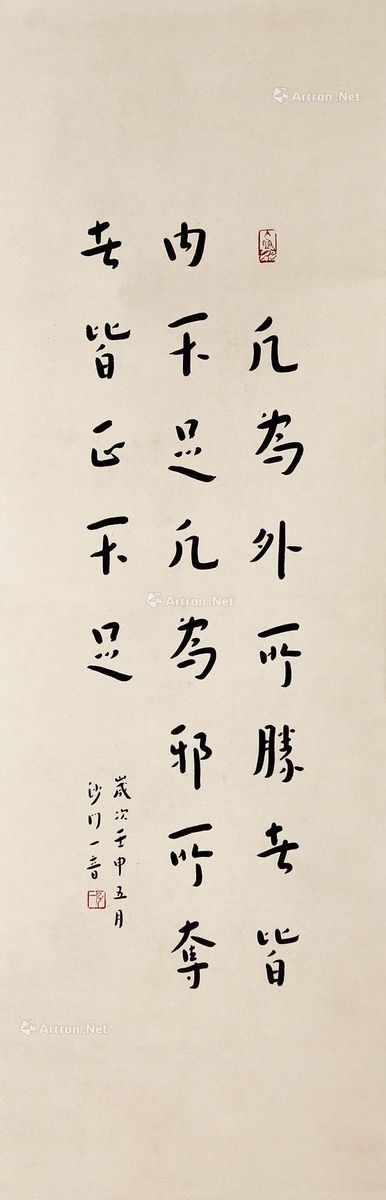 凡為外所勝者皆
内不足凡為邪所奪
者皆正不足
歲次壬申五月
沙門一音
Artron.Net
Artron.Net
Artron.Net